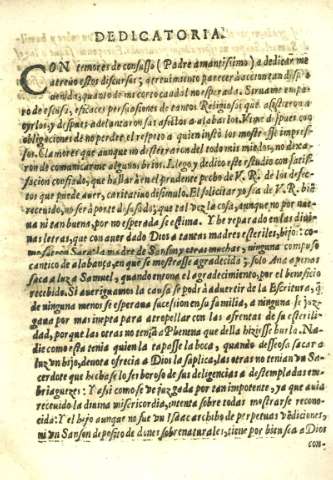 DEDICATORIA.
CON temores de confuso (Padre amantissimo) a dedicar me
atreuo estos discursos; atreuimiento parecerà occasionan dispo
nienda; quanto de mi corto caudal no esperada. Siruame empa
ro de escusa, eficaces persuasiones de tantos Religiosos que assistieron a
oyrlos, y despues adelantaron sus afectos a alabarlos. Vime despues con
obligaciones de no perder el respeto a quien instò los mostrasse impres-
sos. El amor que aunque no desterraron del todo mis miedos, no dexa-
ron de comunicarme algunos brios. Llego, y dedico este estudio con satis-
facion confiado, que hallarà en el prudente pecho de V.R. de los defec-
tos que puede auer, caritatiuo disimulo. El solicitar yo sea de V.R. bien
receuido, no serà por tedioso, que tal vez la cosa, aunque no por nue-
ua ni tan buena, por no esperada se estima. Y he reparado en las diui-
nas letras, que con auer dado Dios a tantas madres esteriles, hijo: co-
mo fueron Sara, la madre de Sanson y otras muchas; ninguna compuso
cantico de alabanço, en que se mostrasse agradecida; solo Ana apenas
saca a luz a Samuel, quando entona el agradecimiento, por el beneficio
recebido. Si aueriguamos la causa se podrà aduertir de la Escritura, q̃
de ninguna menos se esperaua sucession en su familia, a ninguna le juz-
gaua por mas inepta para atropellar con las afrentas de su esterili-
dad, porque las otras no tenian Phenena que della hiziesse burlo. Na-
die como esta tenia quien la tapasse la boca, quando desseosa sacar a
luz vn hijo, deuota ofrecia a Dios la suplica, las otras no tenian vn Sa-
cerdote que hechasse lo feruoroso de sus deligencias a destempladas em-
briaguezes: Y assi como se ve juzgada por tan impotente, ya que auia
receuido la diuina misericordia, intenta sobre todas mostrarse recono-
cida: Y el hijo aunque no fue vn Isaac archibo de perpetuas vẽdiciones,
ni vn Sanson deposito de dones sobrenaturales; tiene por bien sea a Dios
con-